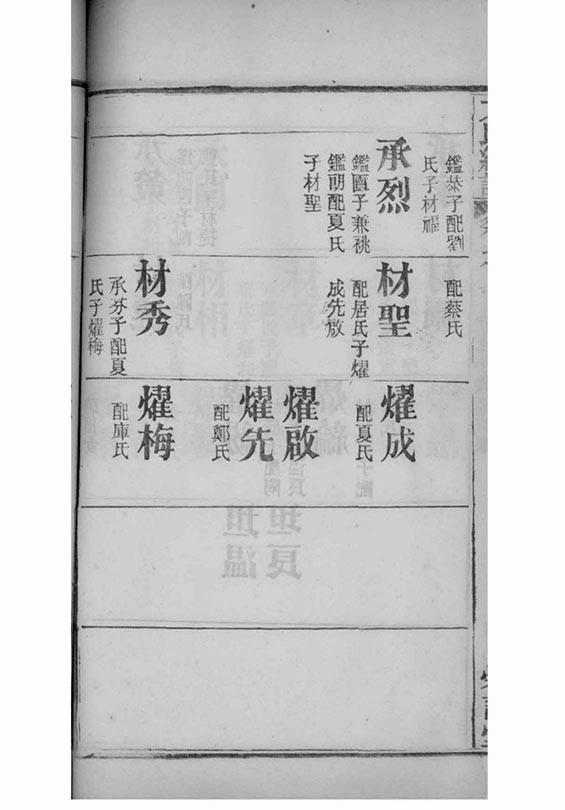 鑑恭子配劉
氏子材禤
承烈
鑑賣子兼祧
鑑朝配夏氏
子材聖
配蔡氏
材聖
配居氏子燿
成先啟
材秀
承芬子配夏
氏子燿梅
燿成
配夏氏
燿啟
燿先
配鄭氏
燿梅
配庫氏